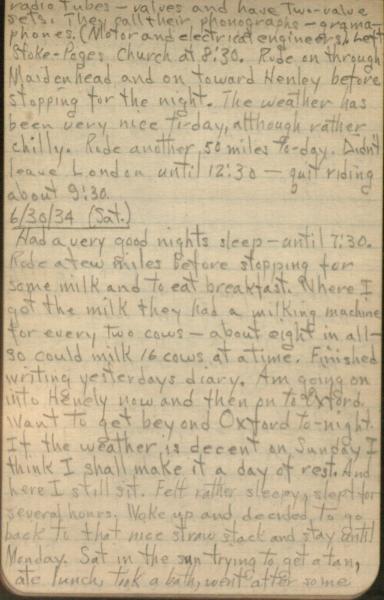 radio tubes – valves and have two-valve
sets. They call their phonographs – grama-
phones. (Motor and electrical engineers). Left
Stoke-Poges Church at 8:30. Rode on through
Maidenhead and on toward Henley before
stopping for the night. The weather has
been very nice to-day, although rather
chilly. Rode another 50 miles to-day. Didn't
leave London until 12:30 – quit riding
about 9:30.
6/30/34 (Sat.)
Had a very good nights sleep – until 7:30.
Rode a few miles before stopping for
some milk and to eat breakfast. Where I
got the milk they had a milking machine
for every two cows – about eight in all –
so could milk 16 cows at a time. Finished
writing yesterdays diary. Am going on
into Henely now and then on to Oxford.
Want to get beyond Oxford to-night.
If the weather is decent on Sunday I
think I shall make it a day of rest. And
here I still sit. Felt rather sleepy, slept for
several hours. Woke up and decided to go
back to that nice straw stack and stay until
Monday. Sat in the sun trying to get a tan,
ate lunch, took a bath, went after some